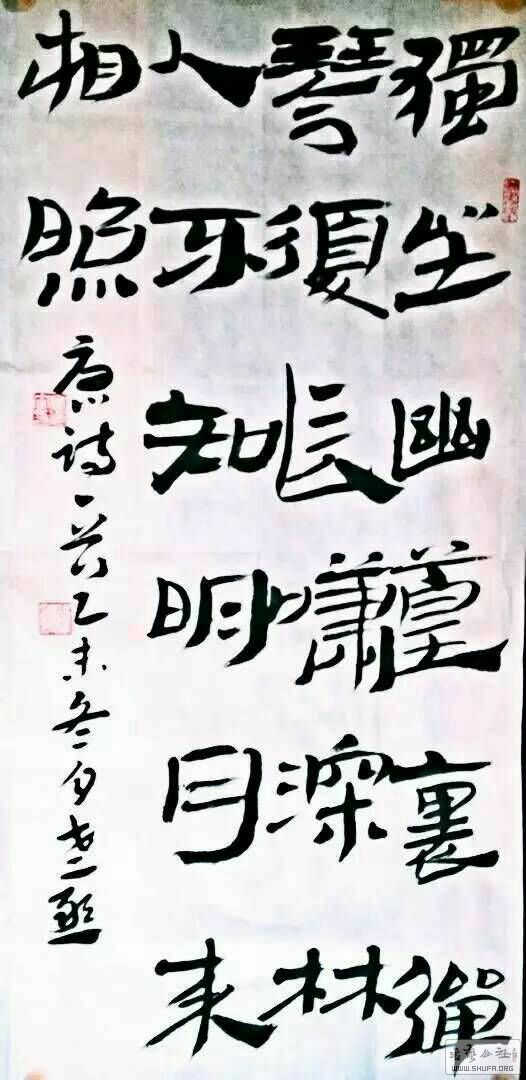 獨坐幽篁裏彈
琴復長嘯深林
人不知明月來
相照
唐詩一首乙未冬月
書藝公社
WWW.SHUFA.ORG